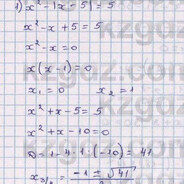 1) x² - 1x - 5| = 5
x² - x + 5 = 5
x² - x = 0
x(x - 1) = 0
x₁ = 0 x₂ = 1
x² + x - 5 = 5
x² + x - 10 = 0
D = 1 - 4·1·(-10) = 41
-1 ± √41